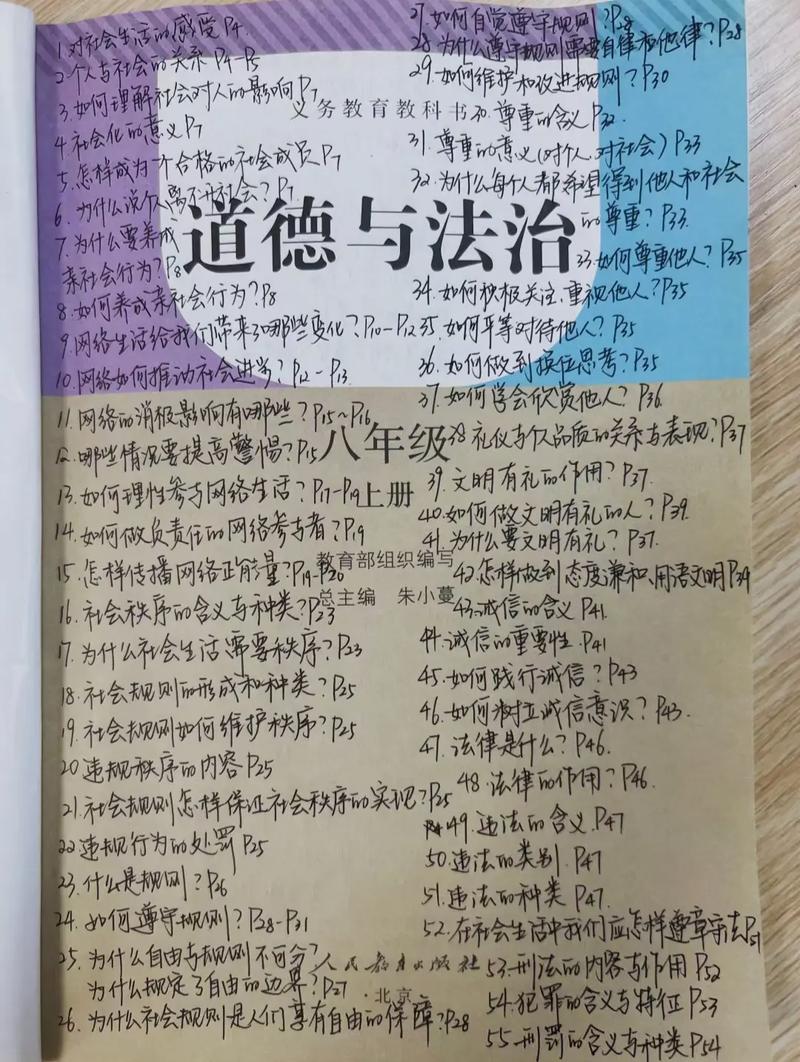 1.对社会生活的感受P4.
2.个人与社会的关系P4-P5
3.如何理解社会对人的影响P7
4.社会化的意义P7
5.怎样成为一个合格的社会成员P7
6.为什么说个人离不开社会?P7
7.为什么要养成
亲社会行为?P8
8.如何养成亲社会行为?P8
9.网络生活给我们带来了哪些变化?P10-P12
10.网络如何推动社会进步?P12-P13
11.网络的消极影响有哪些?P15~P16
12.哪些情况要提高警惕?P15
13.如何理性参与网络生活?P17-P19
14.如何做负责任的网络参与者?P19
15.怎样传播网络正能量?P19-P20
16.社会秩序的含义与种类?P23
17.为什么社会生活需要秩序?P23
18.社会规则的形成和种类?P25
19.社会规则如何维护秩序?P25
20违规秩序的内容P25
21.社会规则怎样保证社会秩序的实现?P25
22违规行为的处罚P25
23.什么是规则?P26
24.如何遵守规则?P28-P31
25.为什么自由与规则不可分?
为什么规定了自由的边界?P27
26.为什么社会规则是人们享有自由的保障?P28
27.如何自觉遵守规则?P28
28.为什么遵守规则需要自律和他律?P28
29.如何维护和改进规则?P30
30.尊重的含义P32.
31.尊重的意义(对个人,对社会)P33
32.为什么每个人都希望得到他人和社会
的尊重?P33.
33.如何尊重他人?P35
34.如何积极关注、重视他人?P35
35.如何平等对待他人?P35
36.如何做到换位思考?P35
37.如何学会欣赏他人?P36
38礼仪与个人品质的关系与表现?P37
39.文明有礼的作用?P37.
40.如何做文明有礼的人?P39.
41.为什么要文明有礼?P37.
42.怎样做到态度谦和、用语文明P39
43.诚信的含义P41.
44.诚信的重要性P41
45.如何践行诚信?P43
46.如何树立诚信意识?P43.
47.法律是什么?P46.
48.法律的作用?P46.
49.违法的含义P47
50.违法的类别P47
51.违法的种类P47.
52.在社会生活中我们应怎样遵章守法P51
53.刑法的内容与作用P52
54.犯罪的含义与特征P53
55.刑罚的含义与种类P54
义务教育教科书
道德与法治
八年级
上册
教育部组织编写
总主编 朱小蔓
人民教育出版社
·北京·